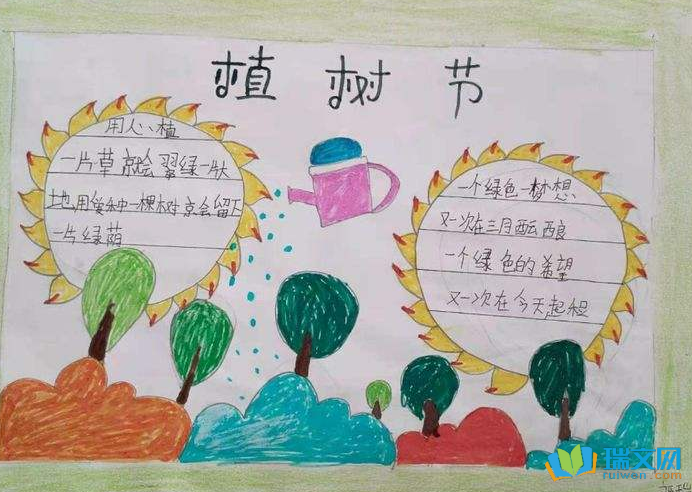 植树节
用心植
一片草就会翠绿一片大
地,用爱种一棵树就会留下
一片绿荫
一个绿色梦想
又一次在三月酝酿
一个绿色的希望
又一次在今天起程
瑞文网
ruiwen.com